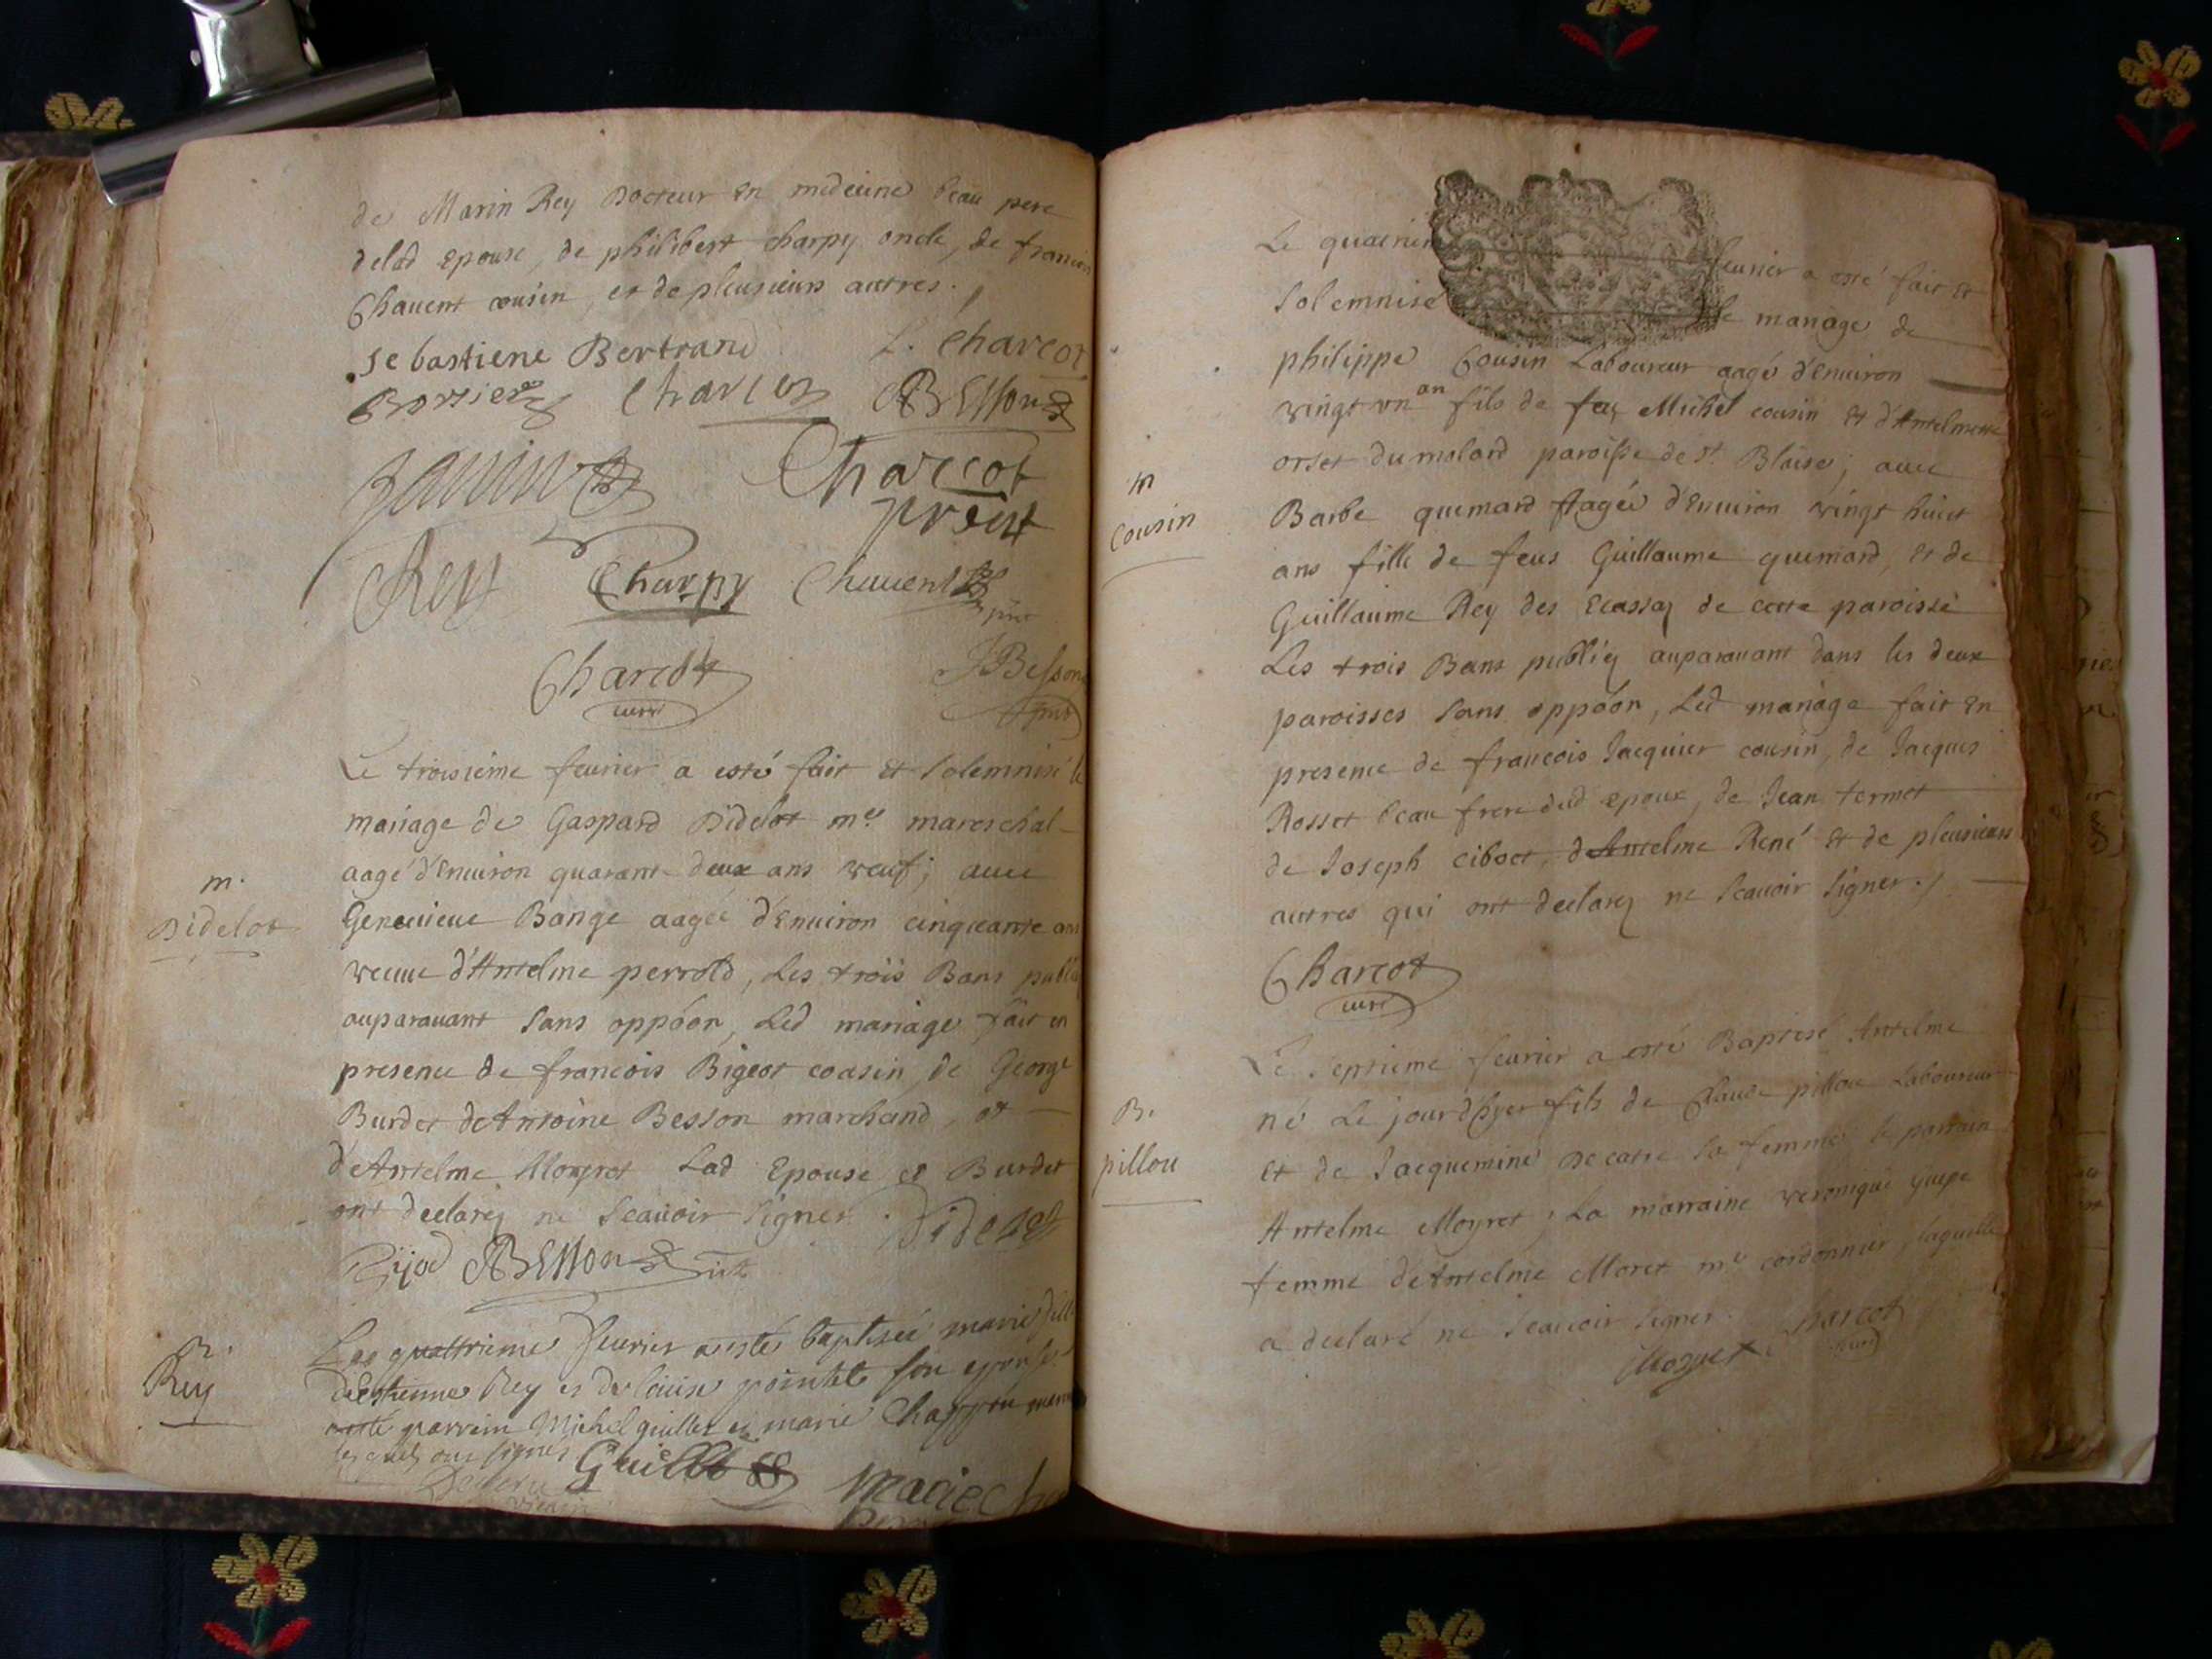 de Marin Rey Docteur en medecine beau pere
delad epouse, de philibert charpy oncle, de francois
Chauent cousin, et de pleusieurs autres.
Sebastiene Bertrand L. Charcot
Charcot Besson
Janin Charcot
prent
Rey Charpy Chauent
pnt
Charcot JBesson
curé pnt
Le troisieme feurier a esté fait et solemnisé le
mariage de Gaspard Didelot me mareschal
aagé d'enuiron quarant deux ans veuf; auec
m.
Didelot
Geneuieue Bange aagée d'enuiron cinqueante ans
veuue d'Antelme perrold, Les trois Bans publié
auparauant sans oppóon, Led mariage fait en
presence de francois Bigeot cousin, de George
Burdet de Antoine Besson marchand, et
d'Antelme Moyret Lad Epouse et Burdet
ont declarez ne scauoir signer. Didelot
Bijod Besson
B.
Rey
Le quattrieme feurier a esté baptisée marie fille
d'estienne Rey et de louise pointet son epouse
parrain Michel guillet et marie
lesquels ont signes Guillet Marie
Le quatrieme feurier a esté fait et
solemnisé le mariage de
philippe Cousin Laboureur aagé d'enuiron
vingt un an fils de feu Michel cousin et d'Antelmette
orset du molard paroisse de st. Blaise; auec
m
Cousin
Barbe quemard aagée d'enuiron vingt huict
ans fille de feus Guillaume quemard, et de
Guillaume Rey des Ecassaz de cette paroisse
Les trois Bans publiez auparauant dans les deux
paroisses sans oppóon, Led mariage fait en
presence de francois Jacquier cousin, de Jacques
Rosset beau frere dud epoux, de Jean termet
de Joseph ciboet, d'Antelme René et de pleusieurs
autres qui ont declarez ne scauoir signer.
Charcot
curé
Le septieme feurier a esté Baptisé Antelme
B.
pillou
né Le jourdhyer fils de Claude pillou Laboureur
et de Jacquemine Decarre sa femme le parrain
Antelme Moyret; La marraine veronique
femme d'Antelme Moret me cordonnier, laquelle
a declaré ne scauoir signer. Charcot
Moyret curé